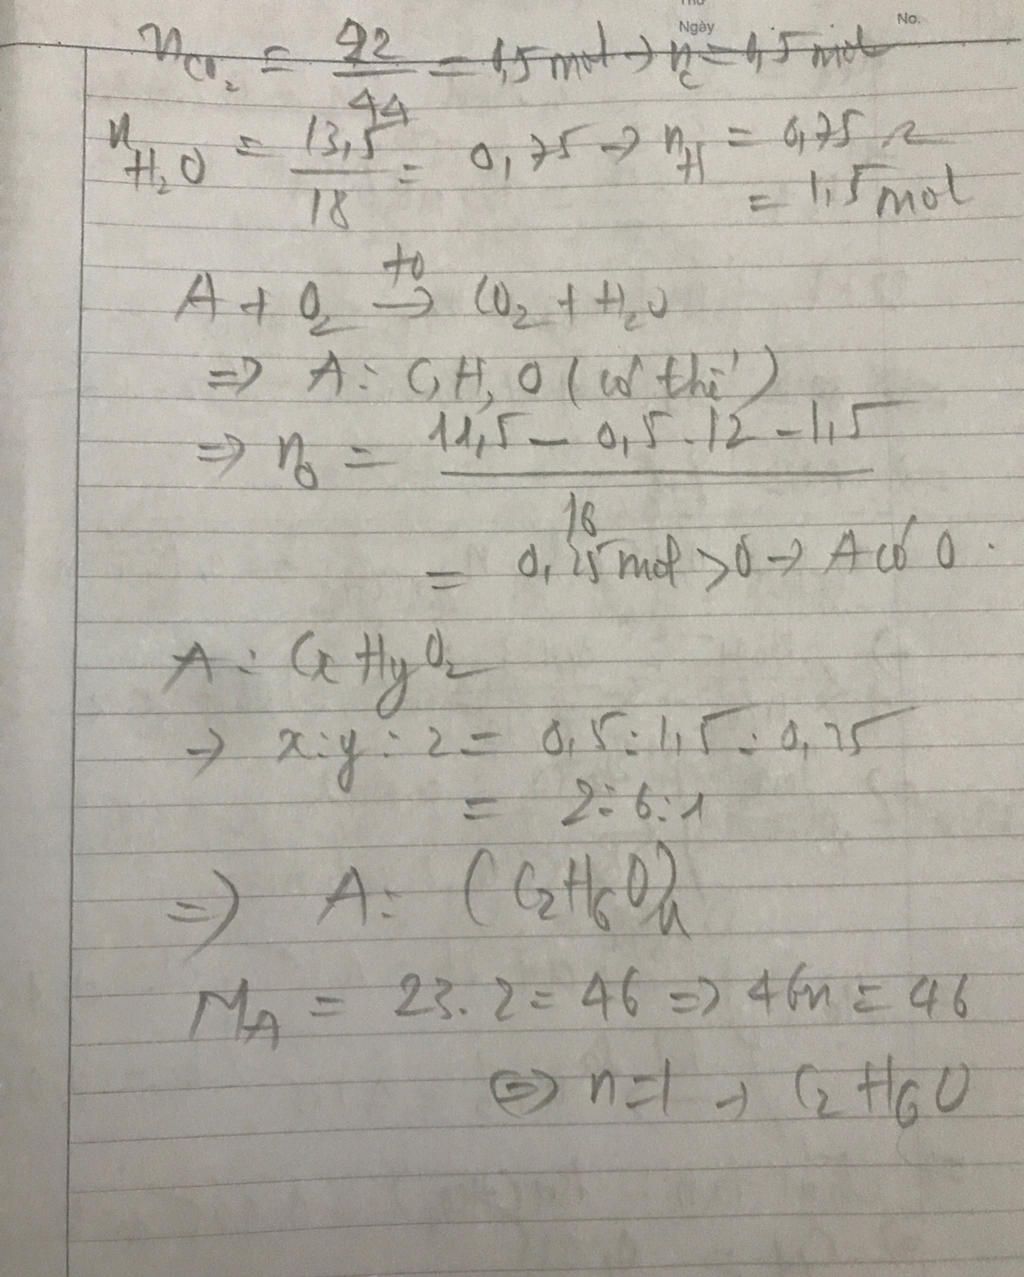 Thứ
Ngày No.
n_CO₂ = 22/44 = 0,5 mol → n_C = 0,5 mol
n_H₂O = 13,5/18 = 0,75 → n_H = 0,75.2
= 1,5 mol
A + O₂ →(t⁰) CO₂ + H₂O
=> A: C, H, O (có thể)
=> n_O = (11,5 - 0,5.12 - 1,5)/16
= 0,25 mol > 0 → A có O.
A: CxHyOz
→ x:y:z = 0,5:1,5:0,25
= 2:6:1
=> A: (C₂H₆O)n
M_A = 23.2 = 46 => 46n = 46
<=> n=1 → C₂H₆O